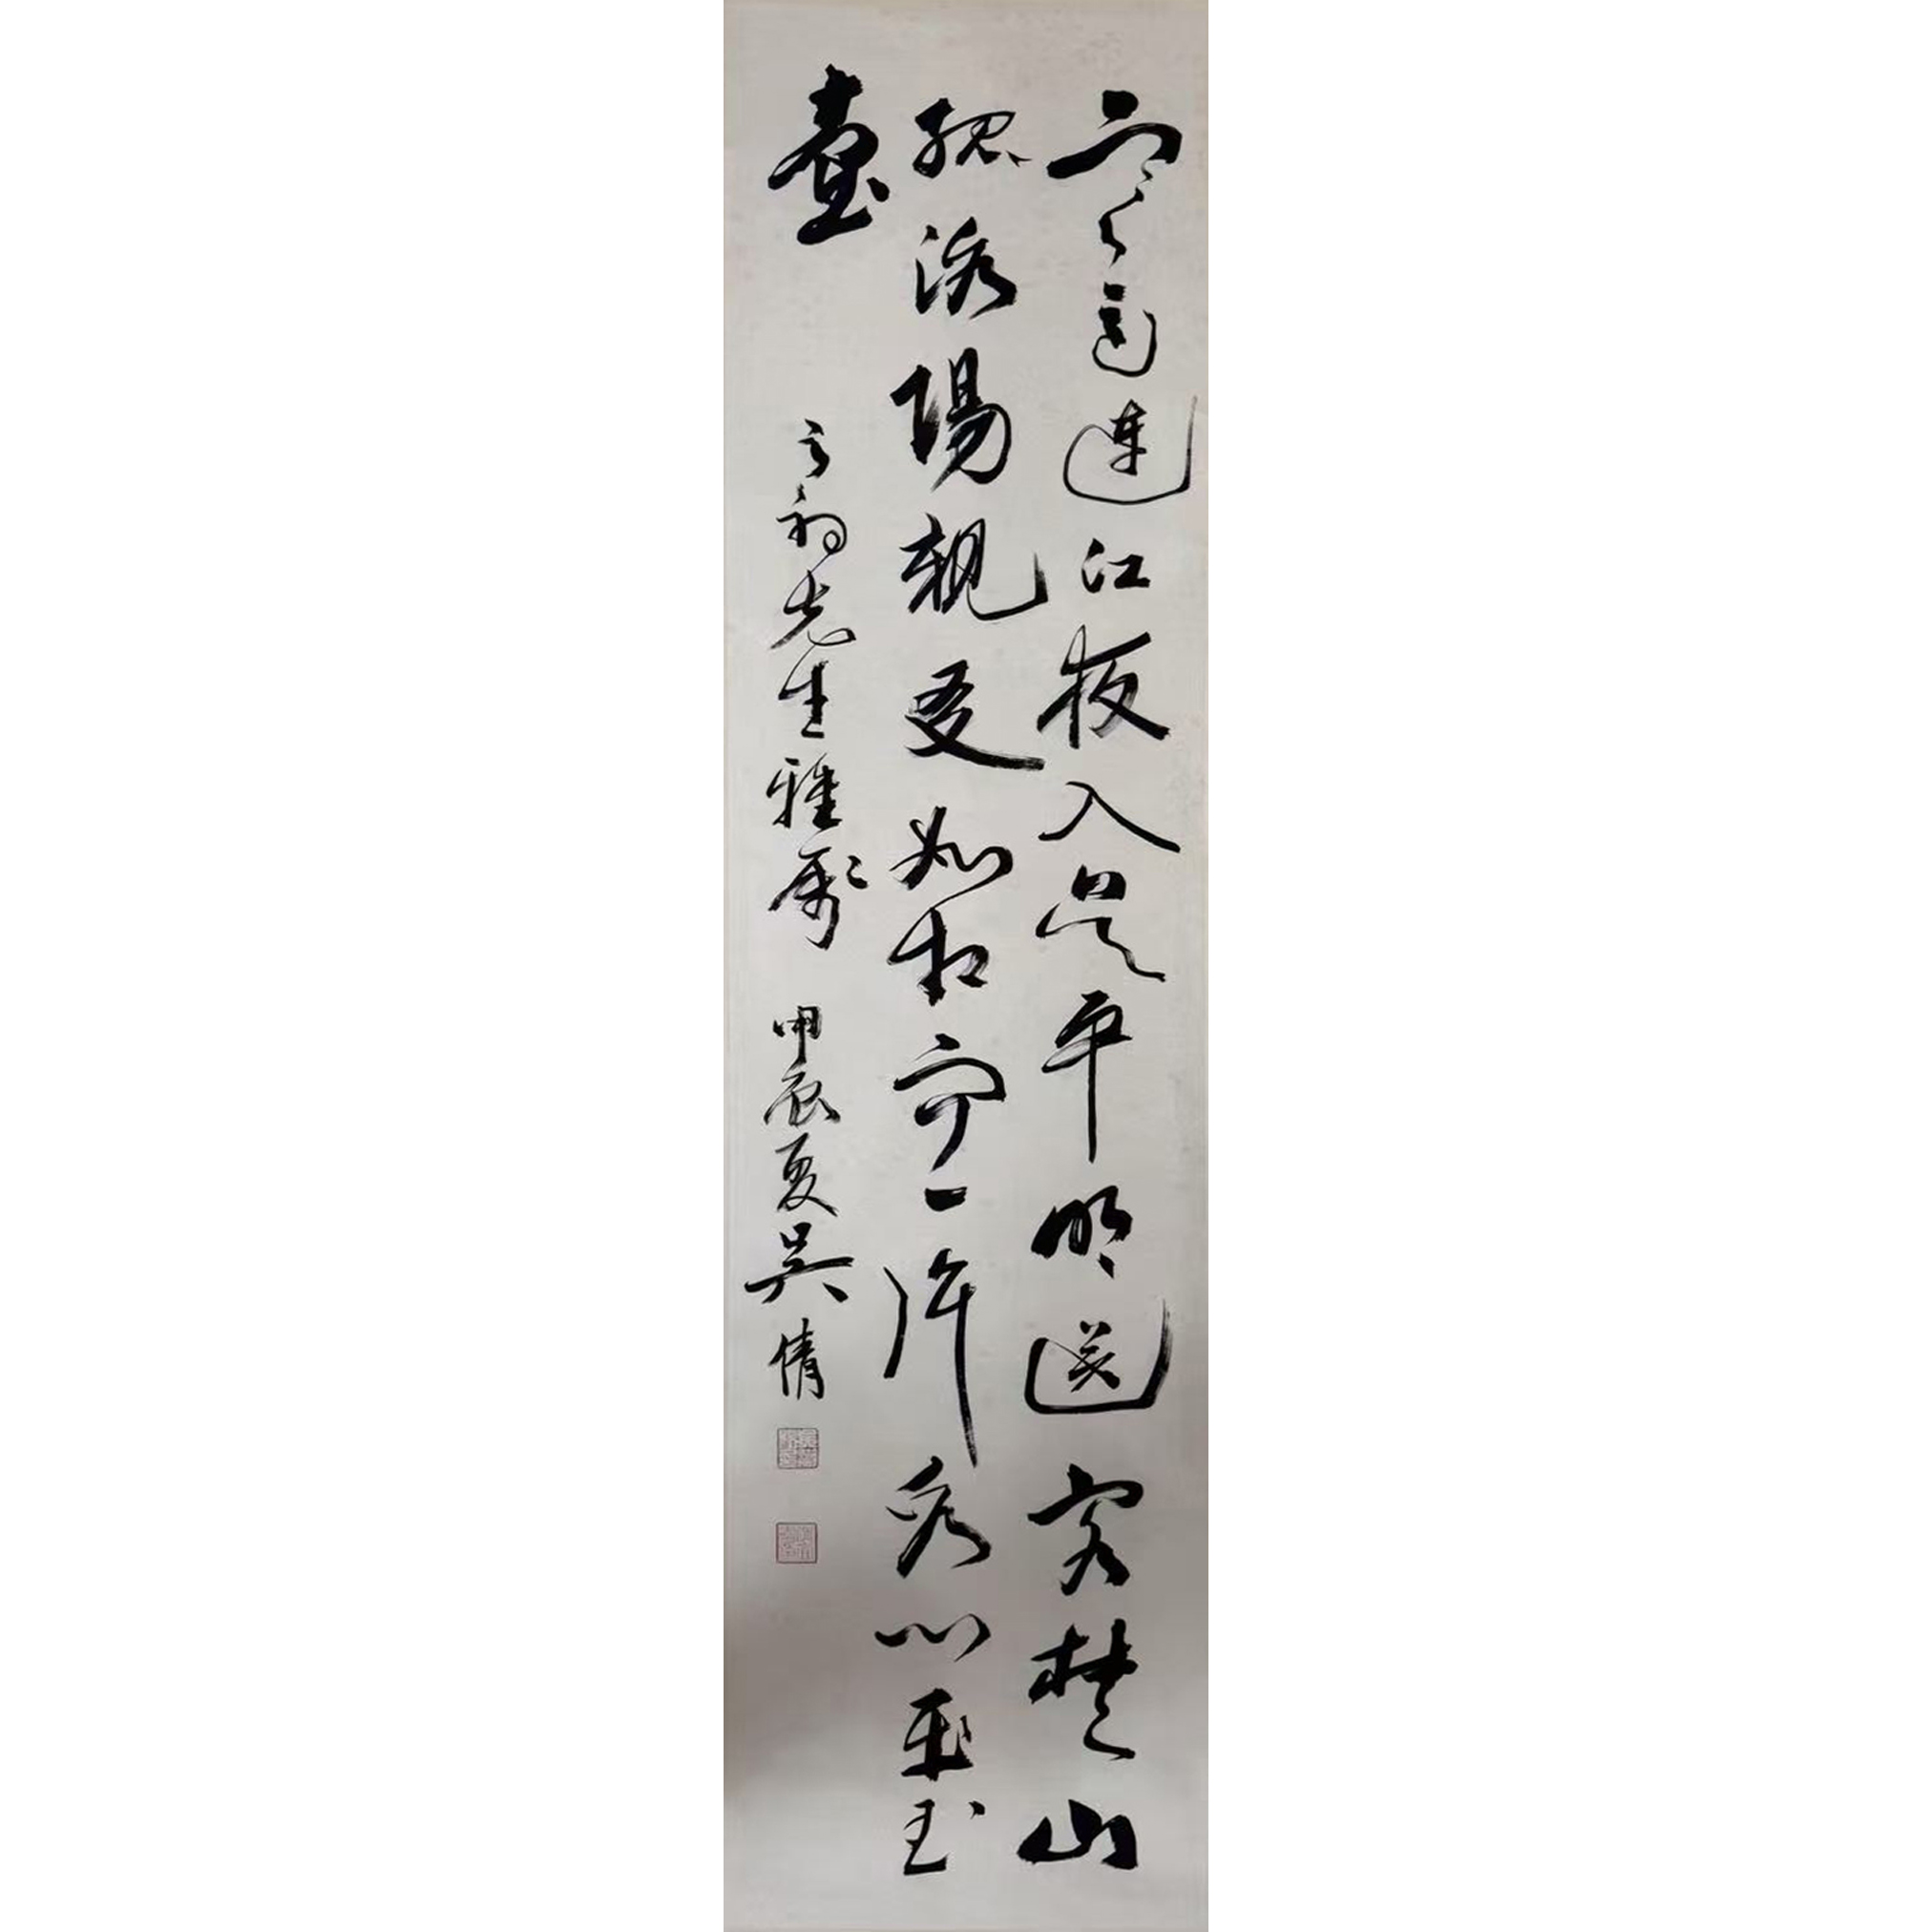 寒雨連江夜入吳平明送客楚山
孤洛陽親友如相問一片冰心在玉
壺
先生雅屬 甲辰夏吳倩